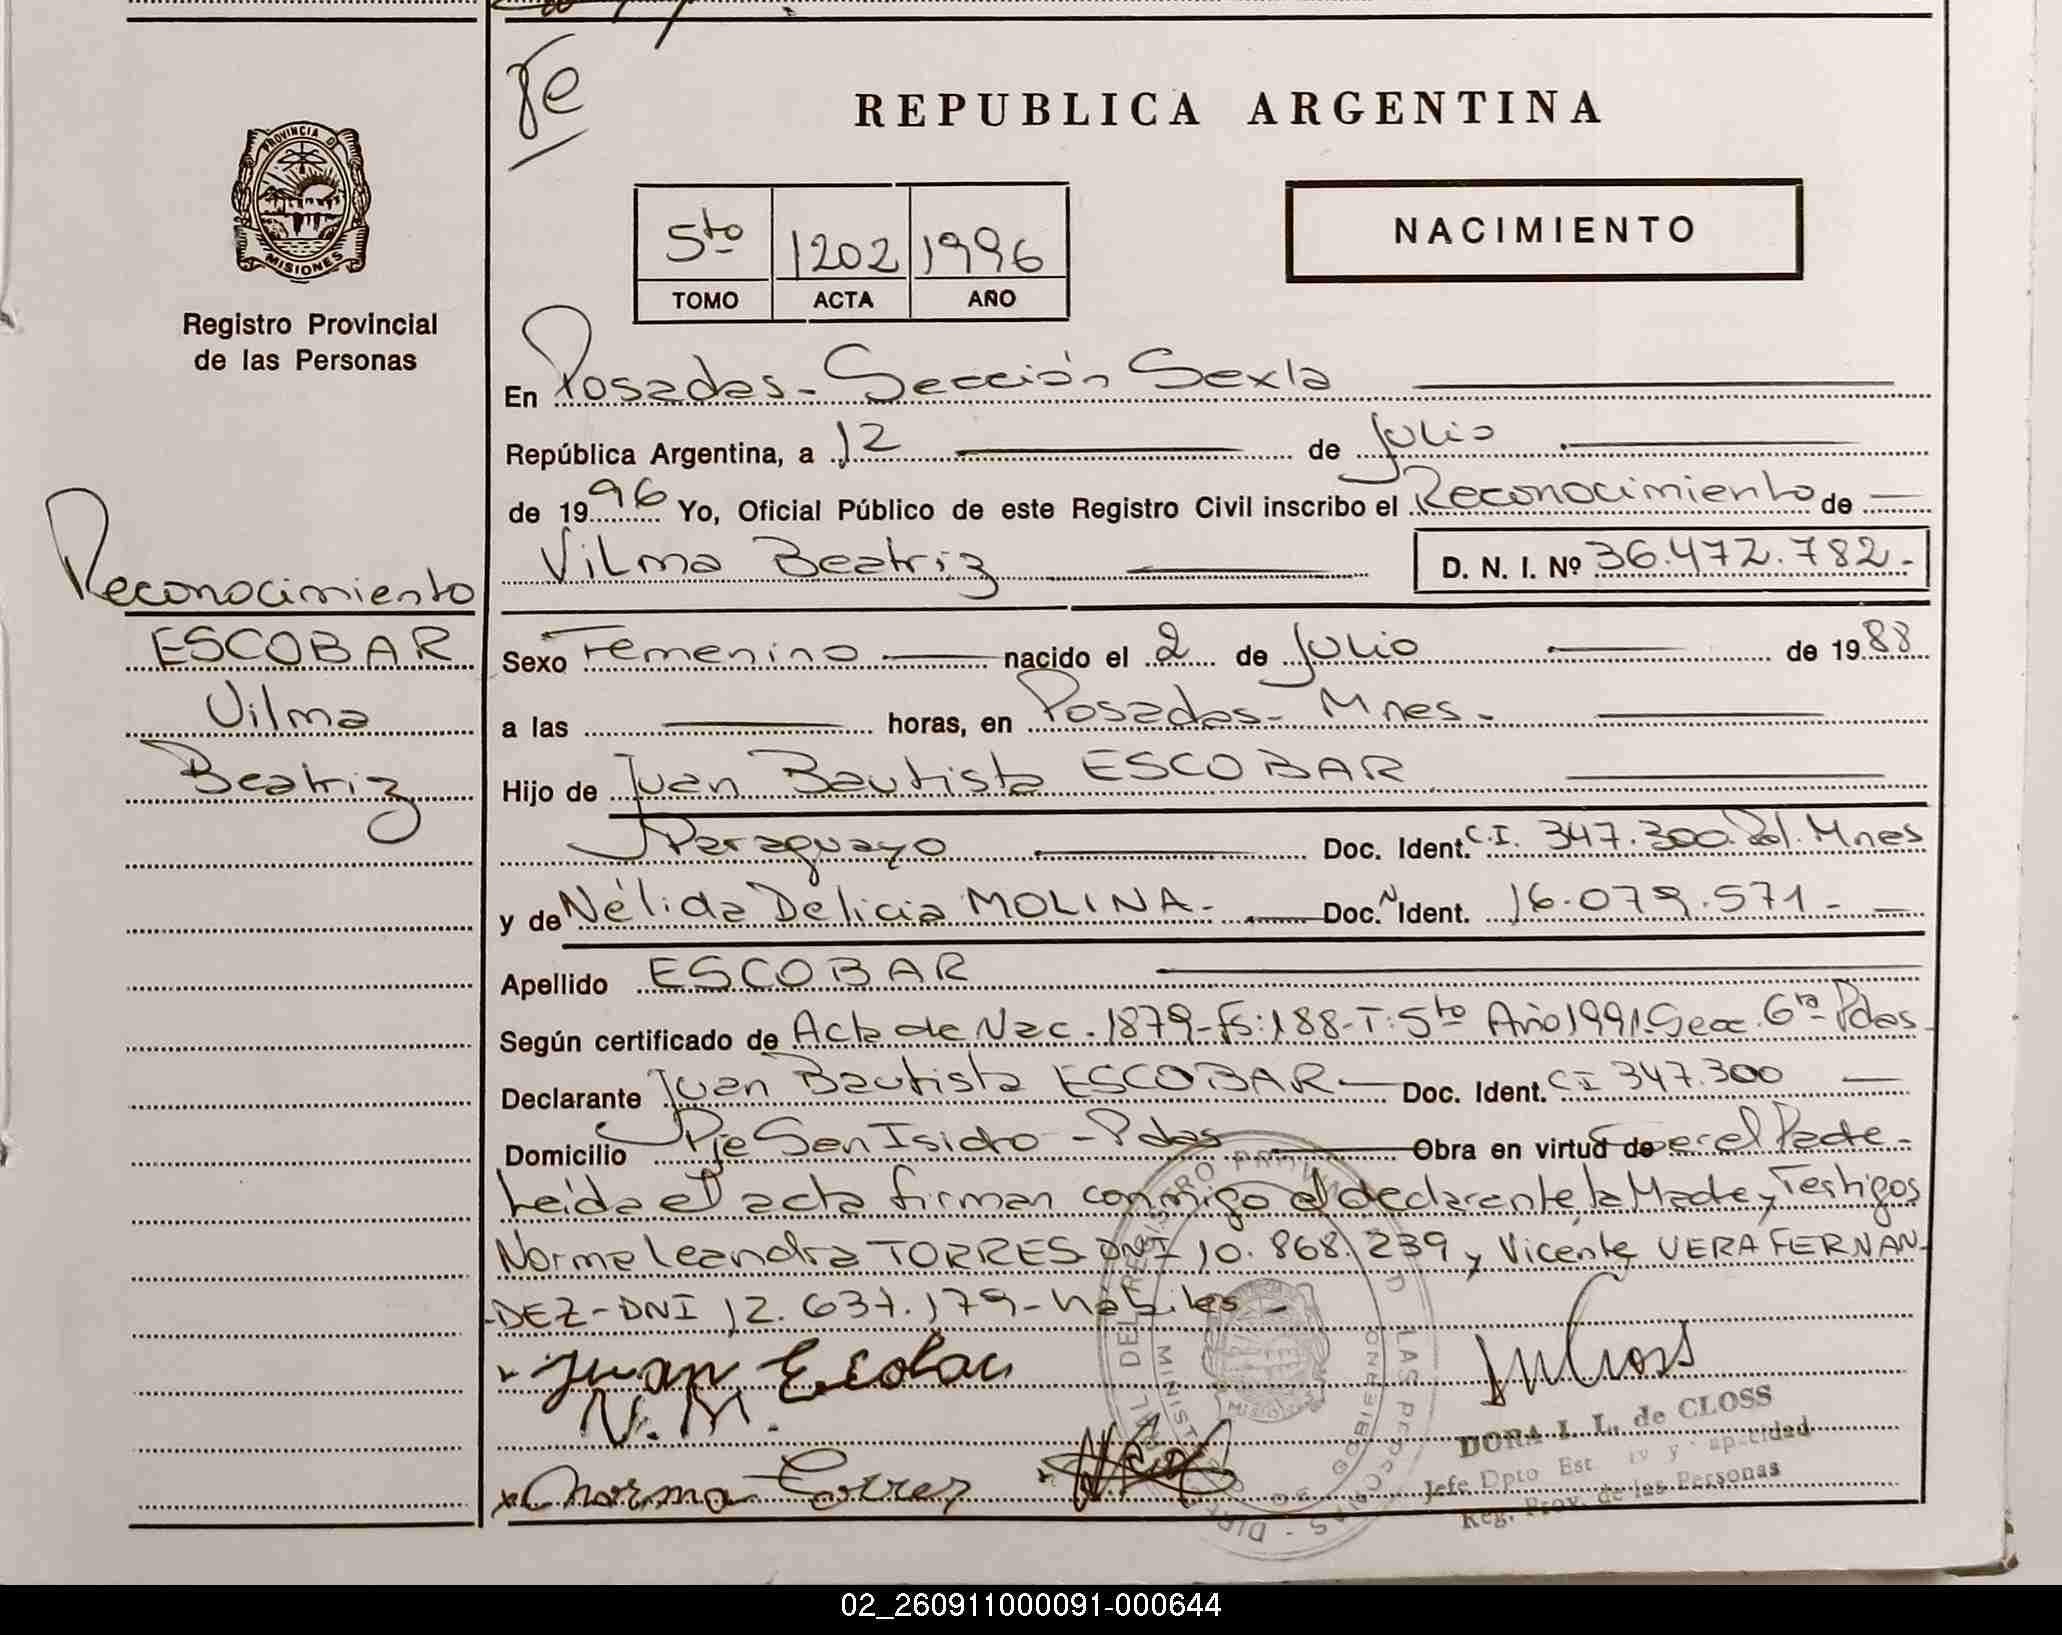 REPUBLICA ARGENTINA
PROVINCIA DE
MISIONES
Registro Provincial
de las Personas
5to 1202 1996
TOMO ACTA AÑO
NACIMIENTO
En Posadas - Sección Sexta
República Argentina, a 12 de Julio
de 1996 Yo, Oficial Público de este Registro Civil inscribo el Reconocimiento de
Vilma Beatriz D. N. I. Nº 36.472.782.-
Reconocimiento
ESCOBAR
Vilma
Beatriz
Sexo Femenino nacido el 2 de Julio de 1988
a las horas, en Posadas - Mnes.
Hijo de Juan Bautista ESCOBAR
Paraguayo Doc. Ident. C.I. 347.300 Pol. Mnes
y de Nélida Delicia MOLINA.- Doc. N Ident. 16.079.571.-
Apellido ESCOBAR
Según certificado de Acta de Nac. 1879-fs:188-T:5to Año 1991 Secc. 6ta Pdas.
Declarante Juan Bautista ESCOBAR Doc. Ident. CI 347.300
Domicilio Pje San Isidro - Pdas Obra en virtud de ser el Padre.-
Leída el acta firman conmigo el declarante, la Madre y Testigos
Norma Leandra TORRES DNI 10.868.239 y Vicente VERA FERNAN-
DEZ - DNI 12.637.179 - hábiles -
Juan Escobar
N. M.
Norma Torres
DORA I. L. de CLOSS
Jefe Dpto Est y Capacidad
Reg. Prov. de las Personas
02_260911000091-000644